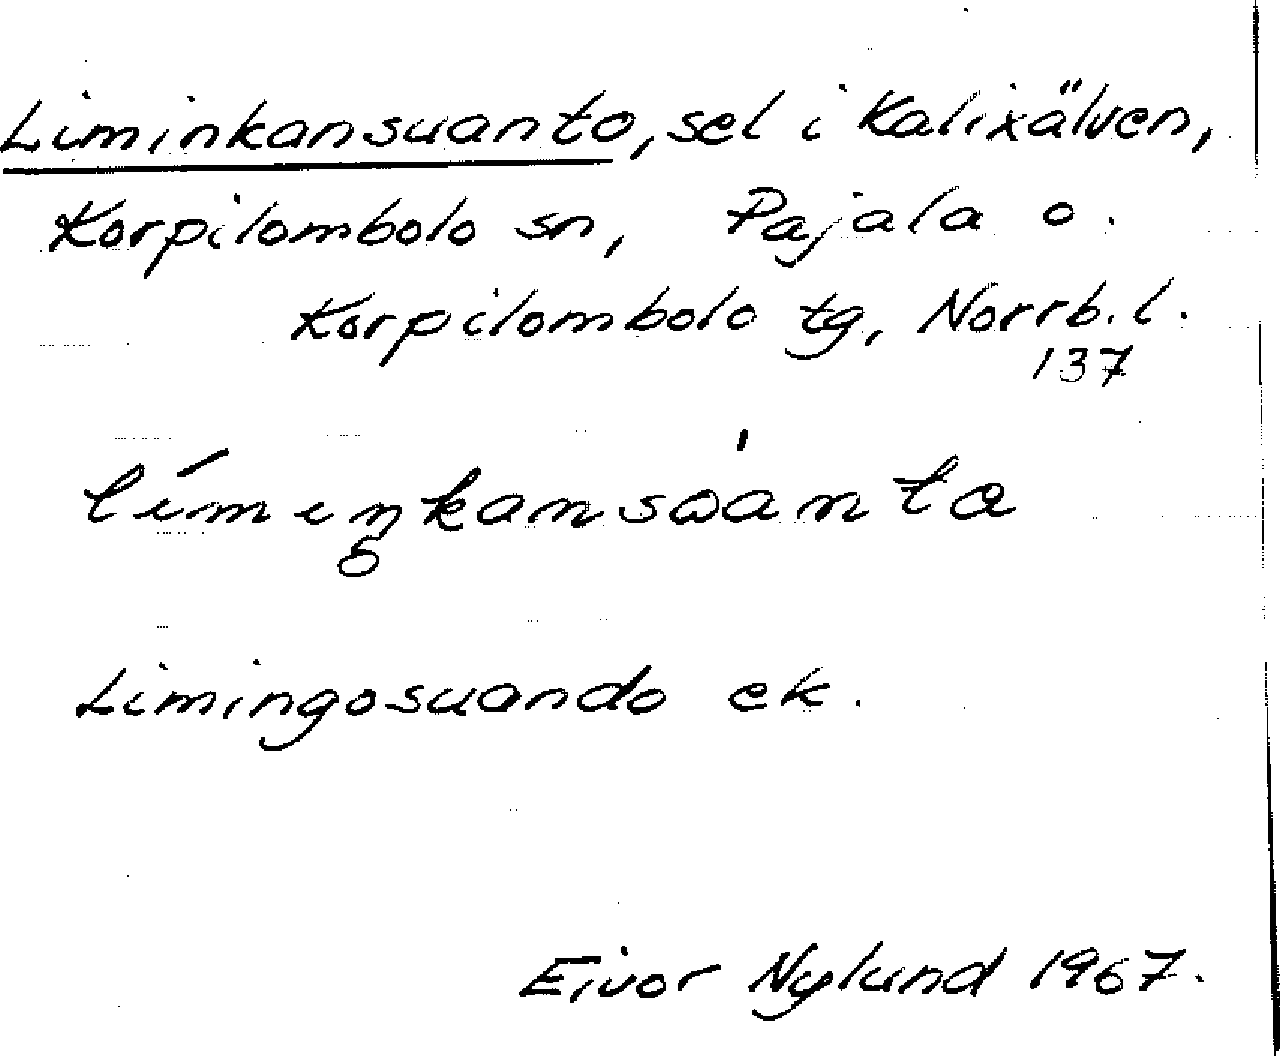 Liminkansuanto, sel i Kalixälven,
Korpilombolo sn, Pajala o.
Korpilombolo tg, Norrb. l.
137
Limingosuando ek.
Eivor Nylund 1967.